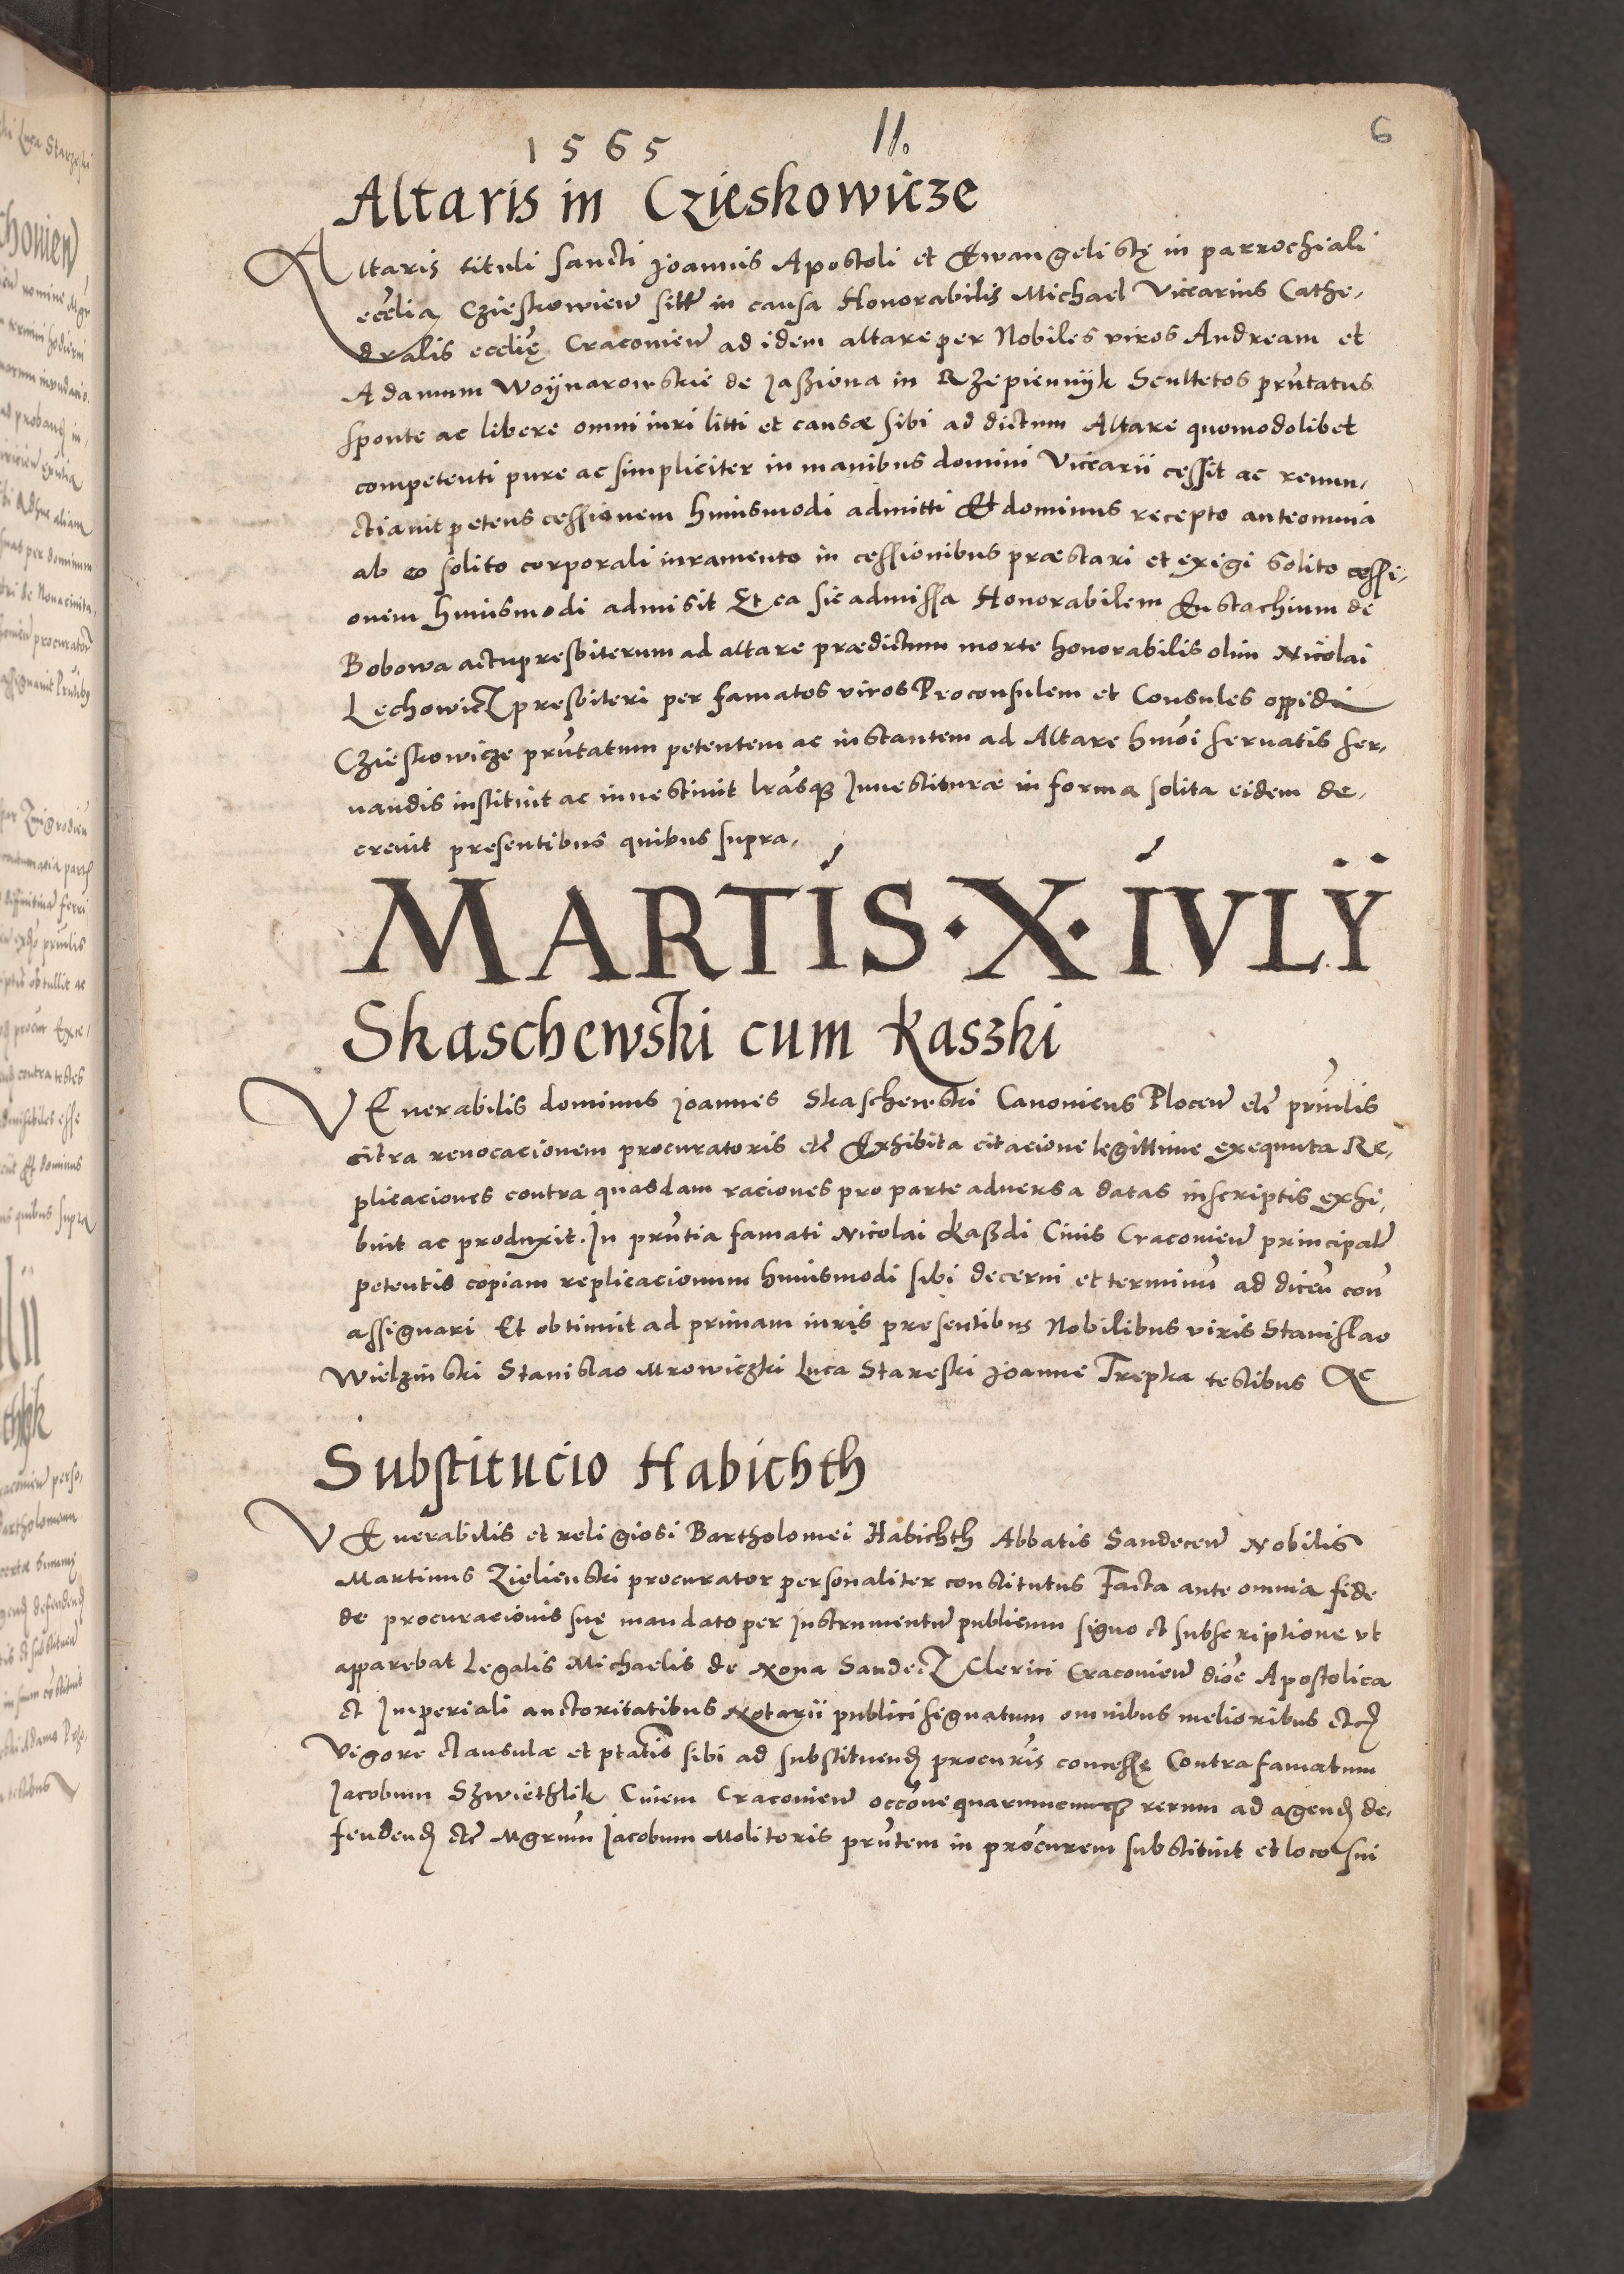 1565 11. 6
Altaris in Czieskowicze
Altaris tituli sancti Joannis Apostoli et Ewangelistę in parrochiali
ecclia Czieskowien sitt in causa Honorabilis Michael Viccarius Cathe-
dralis ecclię Cracovien ad idem altare per Nobiles viros Andream et
Adamum Woÿnarowskie de Jaßiona in Rzepiennÿk Scultetos pñtatus
sponte ac libere omni iuri litti et causæ sibi ad dictum Altare quomodolibet
competenti pure ac simpliciter in manibus domini Viccarii cessit ac renun-
ctiavit petens cessionem huiusmodi admitti Et dominus recepto anteomnia
ab eo solito corporali iuramento in cessionibus præstari et exigi solito cessi-
onem huiusmodi admisit Et ea sic admissa Honorabilem Eustachium de
Bobowa actupresbiterum ad altare prædictum morte honorabilis olim Nicolai
Lechowicz presbiteri per famatos viros Proconsulem et Consules oppidi
Czieskowicze pñtatum petentem ac instantem ad Altare hmoi servatis ser-
vandis instituit ac investivit lrasq3 Investituræ in forma solita eidem de-
crevit presentibus quibus supra.
MARTIS·X·IVLŸ
Skaschewski cum Kaszki
VEnerabilis dominus Joannes Skaschewski Canonicus Plocen etc prinlis
citra revocacionem procuratoris etc Exhibita citacione legittime exequuta Re-
plicaciones contra quasdam raciones pro parte adversa datas inscriptis exhi-
buit ac produxit. In pñtia famati Nicolai Kaßdi Civis Cracovien principal
petentis copiam replicacionum huiusmodi sibi decerni et terminũ ad dicen con
assignari Et obtinuit ad primam iuris presentibus Nobilibus viris Stanislao
Wielzinski Stanislao Mrowiczki Luca Stareski Joanne Trepka testibus &c
Substitucio Habichth
VEnerabilis et religiosi Bartholomei Habichth Abbatis Sandecen Nobilis
Martinus Zielienski procurator personaliter constitutus Facta ante omnia fide
de procuracionis suę mandato per Instrumentũ publicum signo et subscriptione vt
apparebat Legalis Michaelis de Nova Sandecz Clerici Cracovien dioc Apostolica
et Imperiali auctoritatibus Notarii publici signatum omnibus melioribus etc
Vigore clausulæ et ptatis sibi ad substituend procuris concessę Contra famatum
Jacobum Szwiethlik Civem Cracovien occone quarumcumq3 rerum ad agend de-
fendend etc Mgrum Jacobum Molitoris pñtem in procurem substituit et loco sui